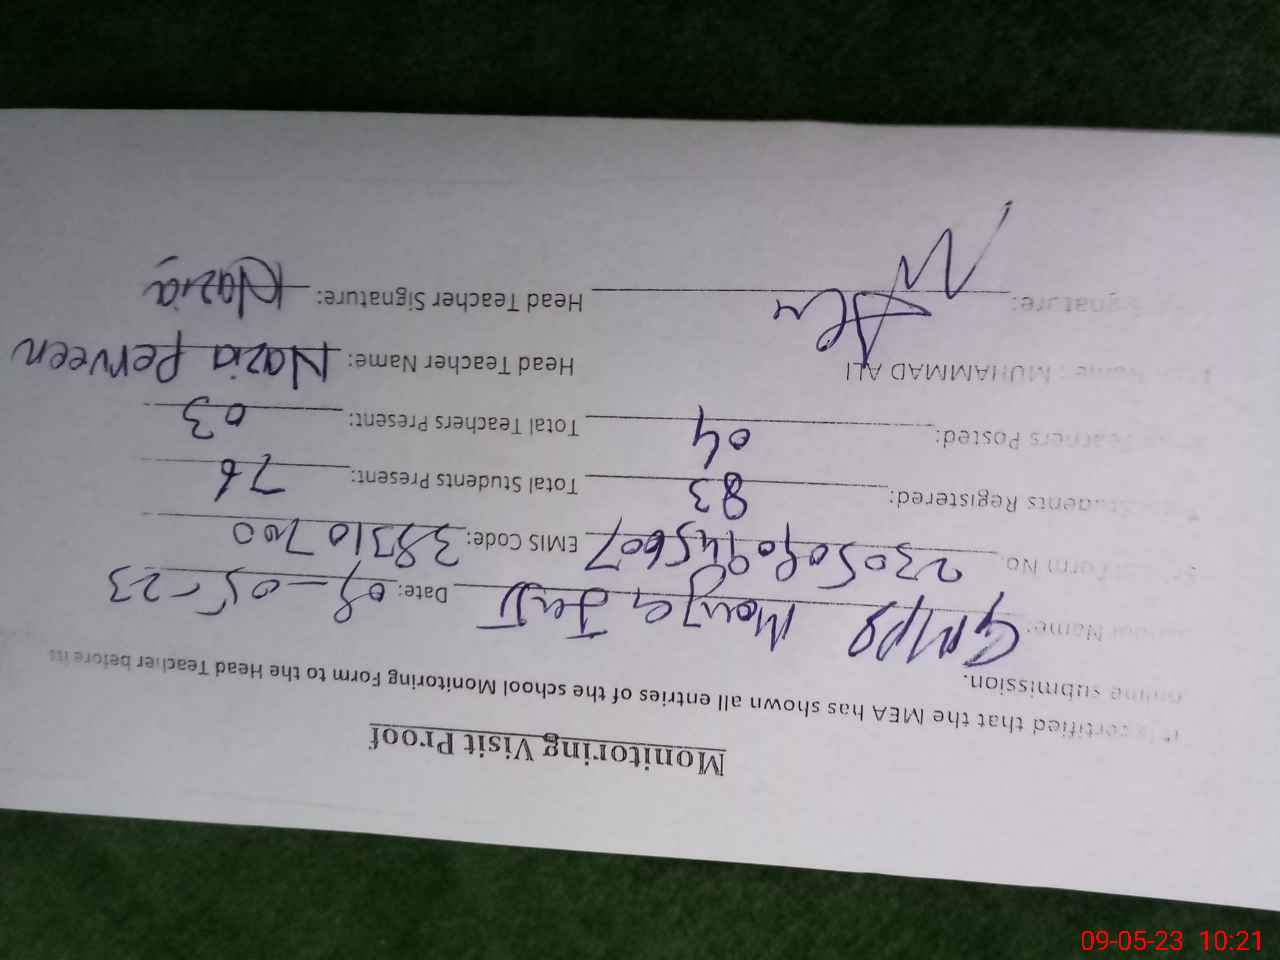 Monitoring Visit Proof
It is certified that the MEA has shown all entries of the school Monitoring Form to the Head Teacher before its
online submission.
Name: GMPS Mouza Date: 09-05-23
Form No. EMIS Code: 38310700
Students Registered: 83 Total Students Present: 76
Teachers Posted: 04 Total Teachers Present: 03
Name: MUHAMMAD ALI Head Teacher Name: Nazia Perveen
Signature: Head Teacher Signature: Nazia
09-05-23 10:21